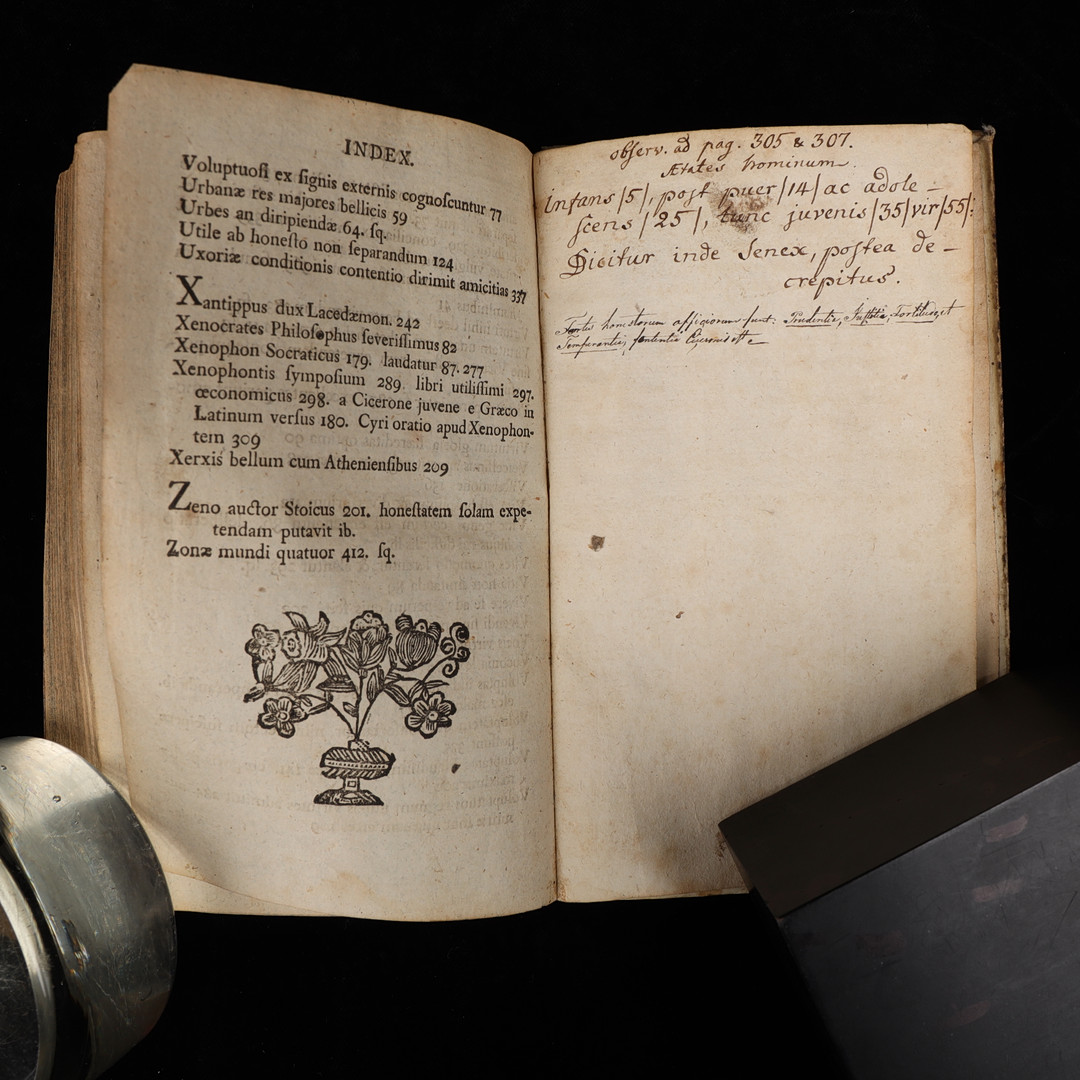 INDEX.
Voluptuoſi ex ſignis externis cognoſcuntur 77
Urbanæ res majores bellicis 59
Urbes an diripiendæ 64. ſq.
Utile ab honeſto non ſeparandum 124
Uxoriæ conditionis contentio dirimit amicitias 337
Xantippus dux Lacedæmon. 242
Xenocrates Philoſophus ſeveriſſimus 82
Xenophon Socraticus 179. laudatur 87. 277
Xenophontis ſympoſium 289. libri utiliſſimi 297.
œconomicus 298. a Cicerone juvene e Græco in
Latinum verſus 180. Cyri oratio apud Xenophon-
tem 309
Xerxis bellum cum Athenienſibus 209
Zeno auctor Stoicus 201. honeſtatem ſolam expe-
tendam putavit ib.
Zonæ mundi quatuor 412. ſq.
obſerv. ad pag. 305 & 307.
Ætates hominum.
infans /5/, poſt puer /14/ ac adole-
ſcens /25/, tunc juvenis /35/ vir /55/:
Dicitur inde Senex, poſtea de-
crepitus.
honeſtorum ſunt: Prudentia, Juſtitia, Fortitudo, et
Temperantia, ſententia Ciceronis